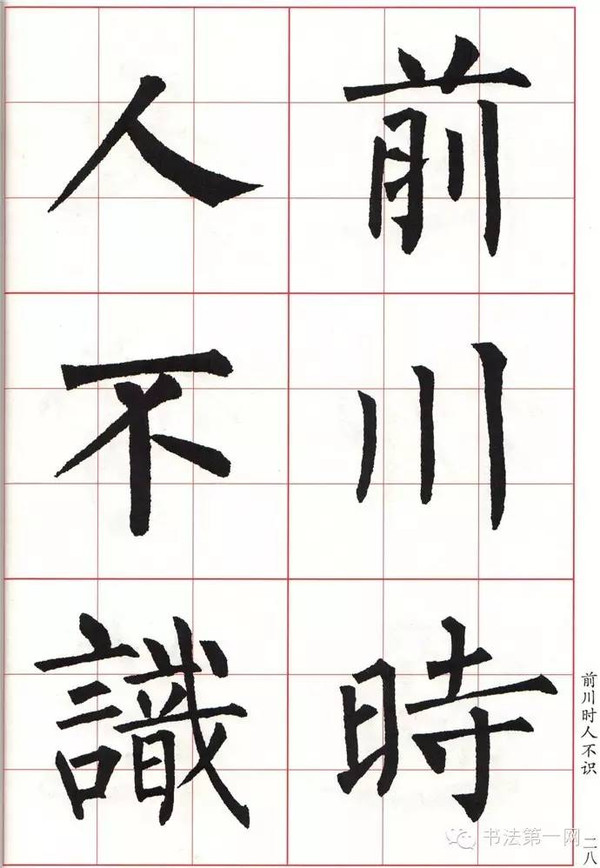 前川時
人不識
前川时人不识
二八
书法第一网